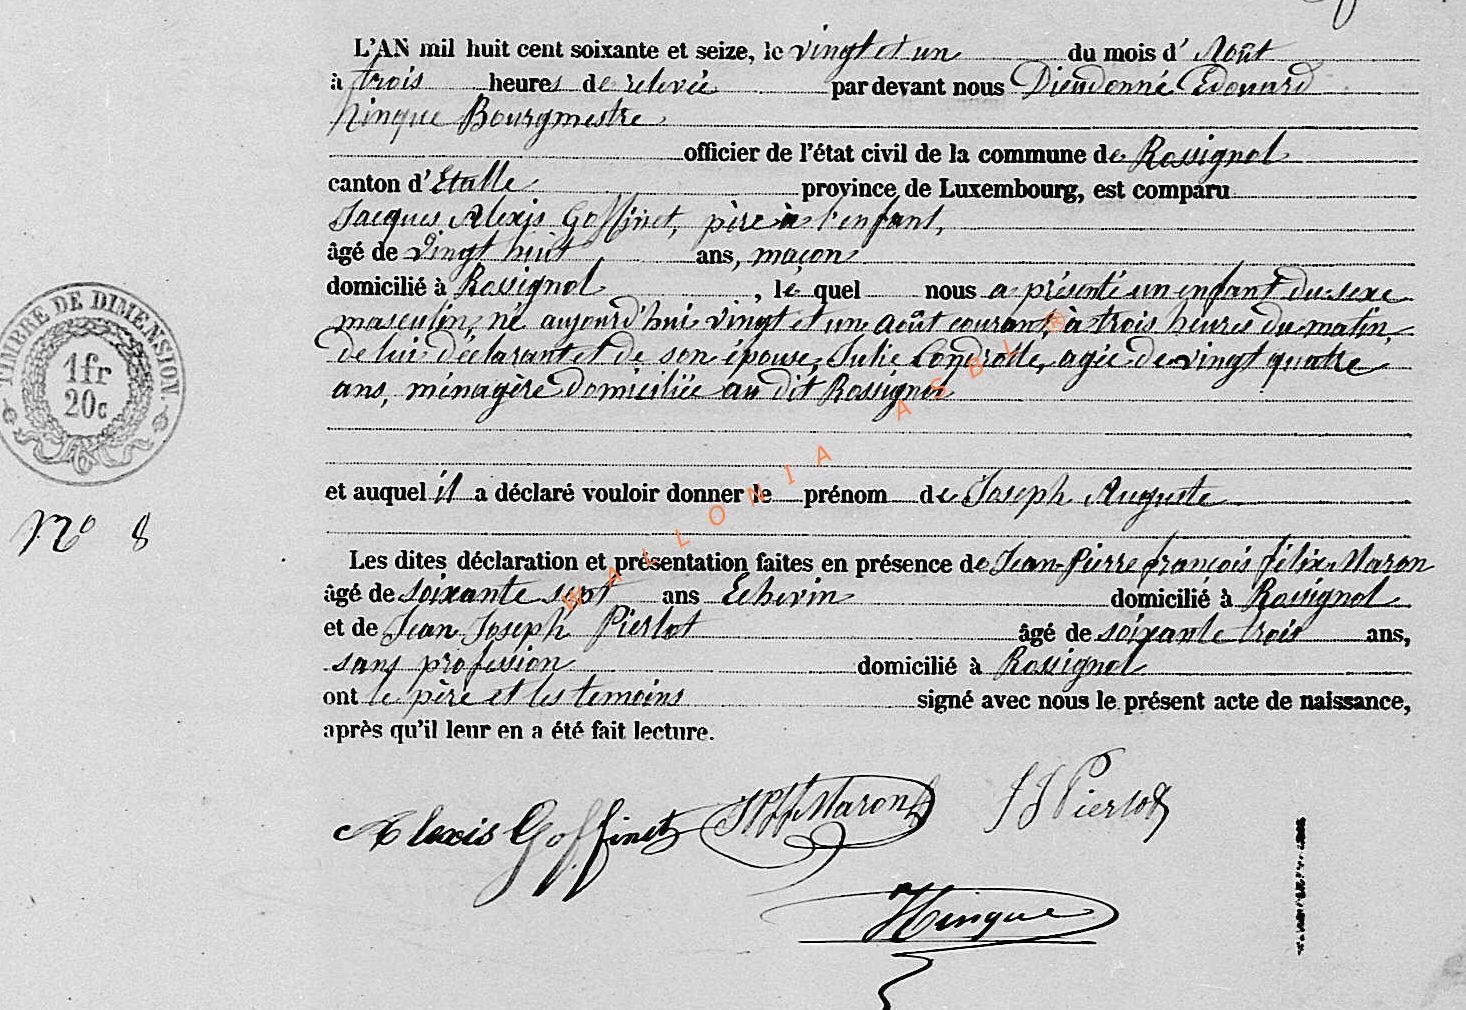 L'AN mil huit cent soixante et seize, le vingt et un du mois d' Août
à trois heures de relevée par devant nous Dieudonné Edouard
Hinque Bourgmestre
officier de l'état civil de la commune de Rossignol
canton d' Etalle province de Luxembourg, est comparu
Jacques Alexis Goffinet, père à l'enfant,
âgé de vingt huit ans, maçon
domicilié à Rossignol, le quel nous a présenté un enfant du sexe
masculin, né aujourd'hui vingt et un août courant, à trois heures du matin,
de lui déclarant et de son épouse, Julie Condrotte, agée de vingt quatre
ans, ménagère domiciliée au dit Rossignol
et auquel il a déclaré vouloir donner le prénom de Joseph Auguste
Les dites déclaration et présentation faites en présence de Jean-Pierre françois félix Maron
âgé de soixante sept ans Echevin domicilié à Rossignol
et de Jean Joseph Pierlot âgé de soixante trois ans,
sans profession domicilié à Rossignol
ont le père et les temoins signé avec nous le présent acte de naissance,
après qu'il leur en a été fait lecture.
Alexis Goffinet JPff Maron JJ Pierlot
Hinque
TIMBRE DE DIMENSION.
1fr
20c
No 8
WALLONIA ASBL ®